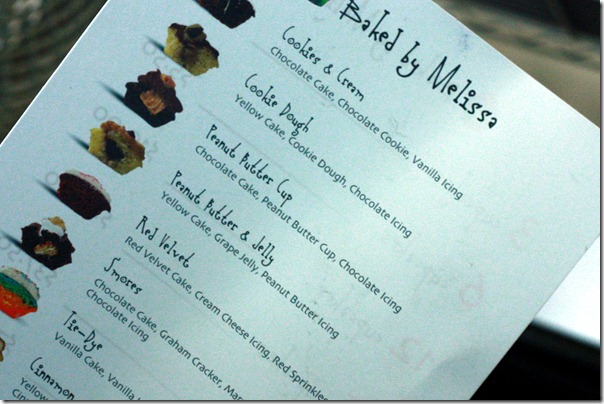 Baked by Melissa
Cookies & Cream
Chocolate Cake, Chocolate Cookie, Vanilla Icing
Cookie Dough
Yellow Cake, Cookie Dough, Chocolate Icing
Peanut Butter Cup
Chocolate Cake, Peanut Butter Cup, Chocolate Icing
Peanut Butter & Jelly
Yellow Cake, Grape Jelly, Peanut Butter Icing
Red Velvet
Red Velvet Cake, Cream Cheese Icing, Red Sprinkles
S'mores
Chocolate Cake, Graham Cracker, Mar
Chocolate Icing
Tie-Dye
Vanilla Cake, Vanilla
Cinnamon
Yellow